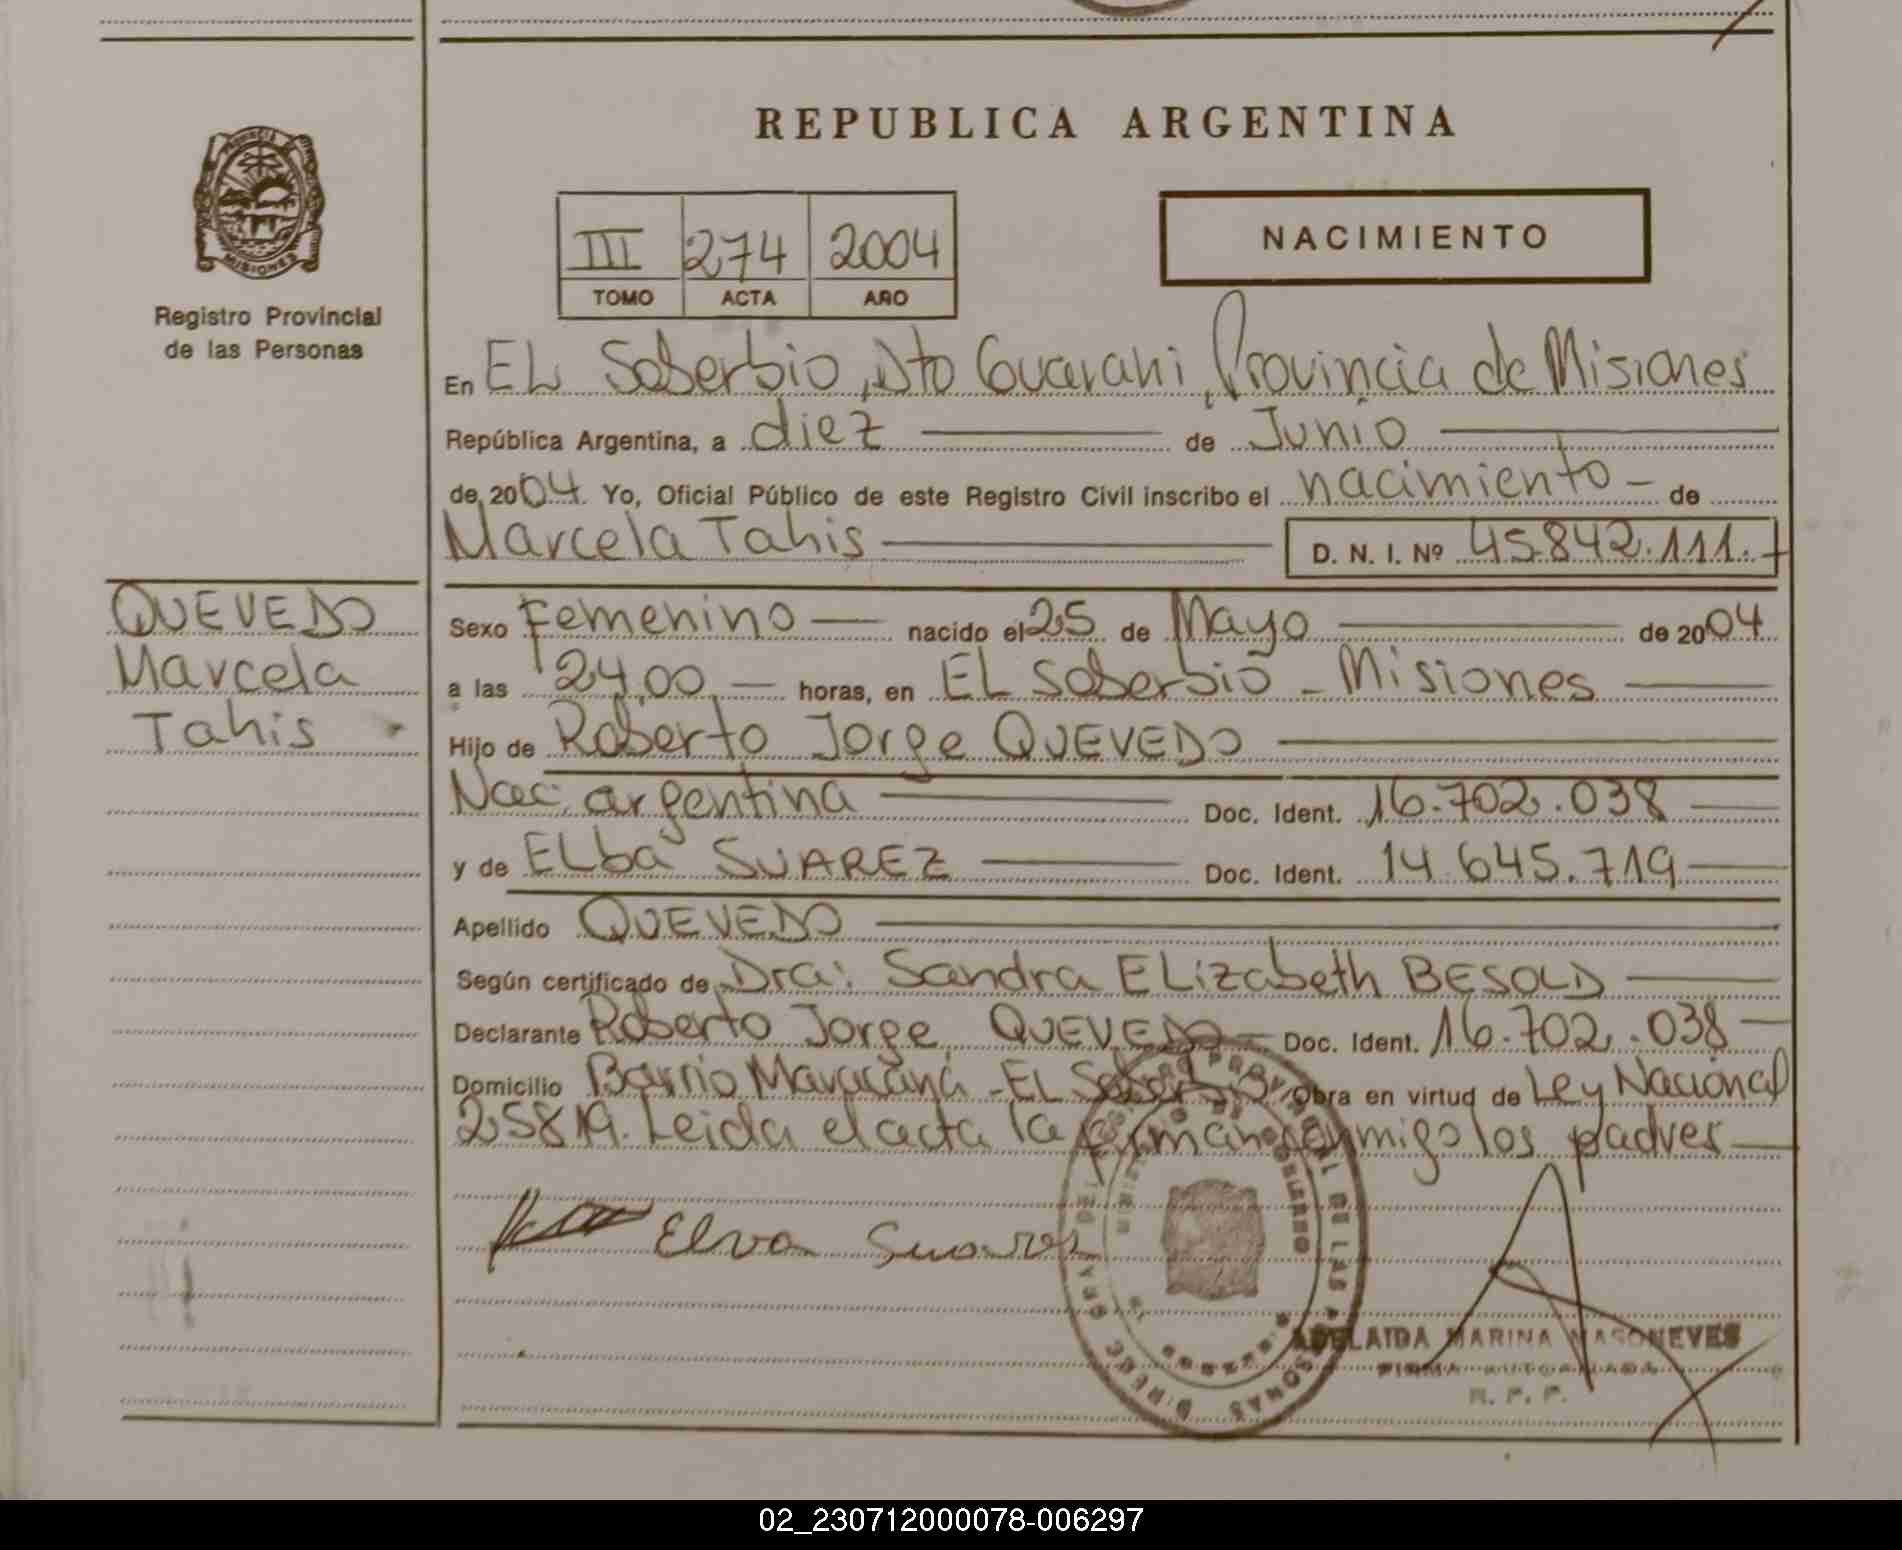 PROVINCIA
MISIONES
Registro Provincial
de las Personas
QUEVEDO
Marcela
Tahis
REPUBLICA ARGENTINA
III 274 2004
TOMO ACTA AÑO
NACIMIENTO
En EL Soberbio, Dto Guarani, Provincia de Misiones
República Argentina, a diez de Junio
de 2004. Yo, Oficial Público de este Registro Civil inscribo el nacimiento - de
Marcela Tahis D. N. I. Nº 45.842.111.-
Sexo Femenino nacido el 25 de Mayo de 2004
a las 24,00 horas, en EL Soberbio - Misiones
Hijo de Roberto Jorge QUEVEDO
Nac. argentina Doc. Ident. 16.702.038
y de ELba SUAREZ Doc. Ident. 14.645.719
Apellido QUEVEDO
Según certificado de Dra: Sandra ELizabeth BESOLD
Declarante Roberto Jorge QUEVEDO Doc. Ident. 16.702.038
Domicilio Barrio Maracaná - EL Soberbio Obra en virtud de Ley Nacional
25819. Leida el acta la firman conmigo los padres
Elva Suarez
ADELAIDA MARINA MASONEVES
FIRMA AUTORIZADA
R. P. P.
02_230712000078-006297